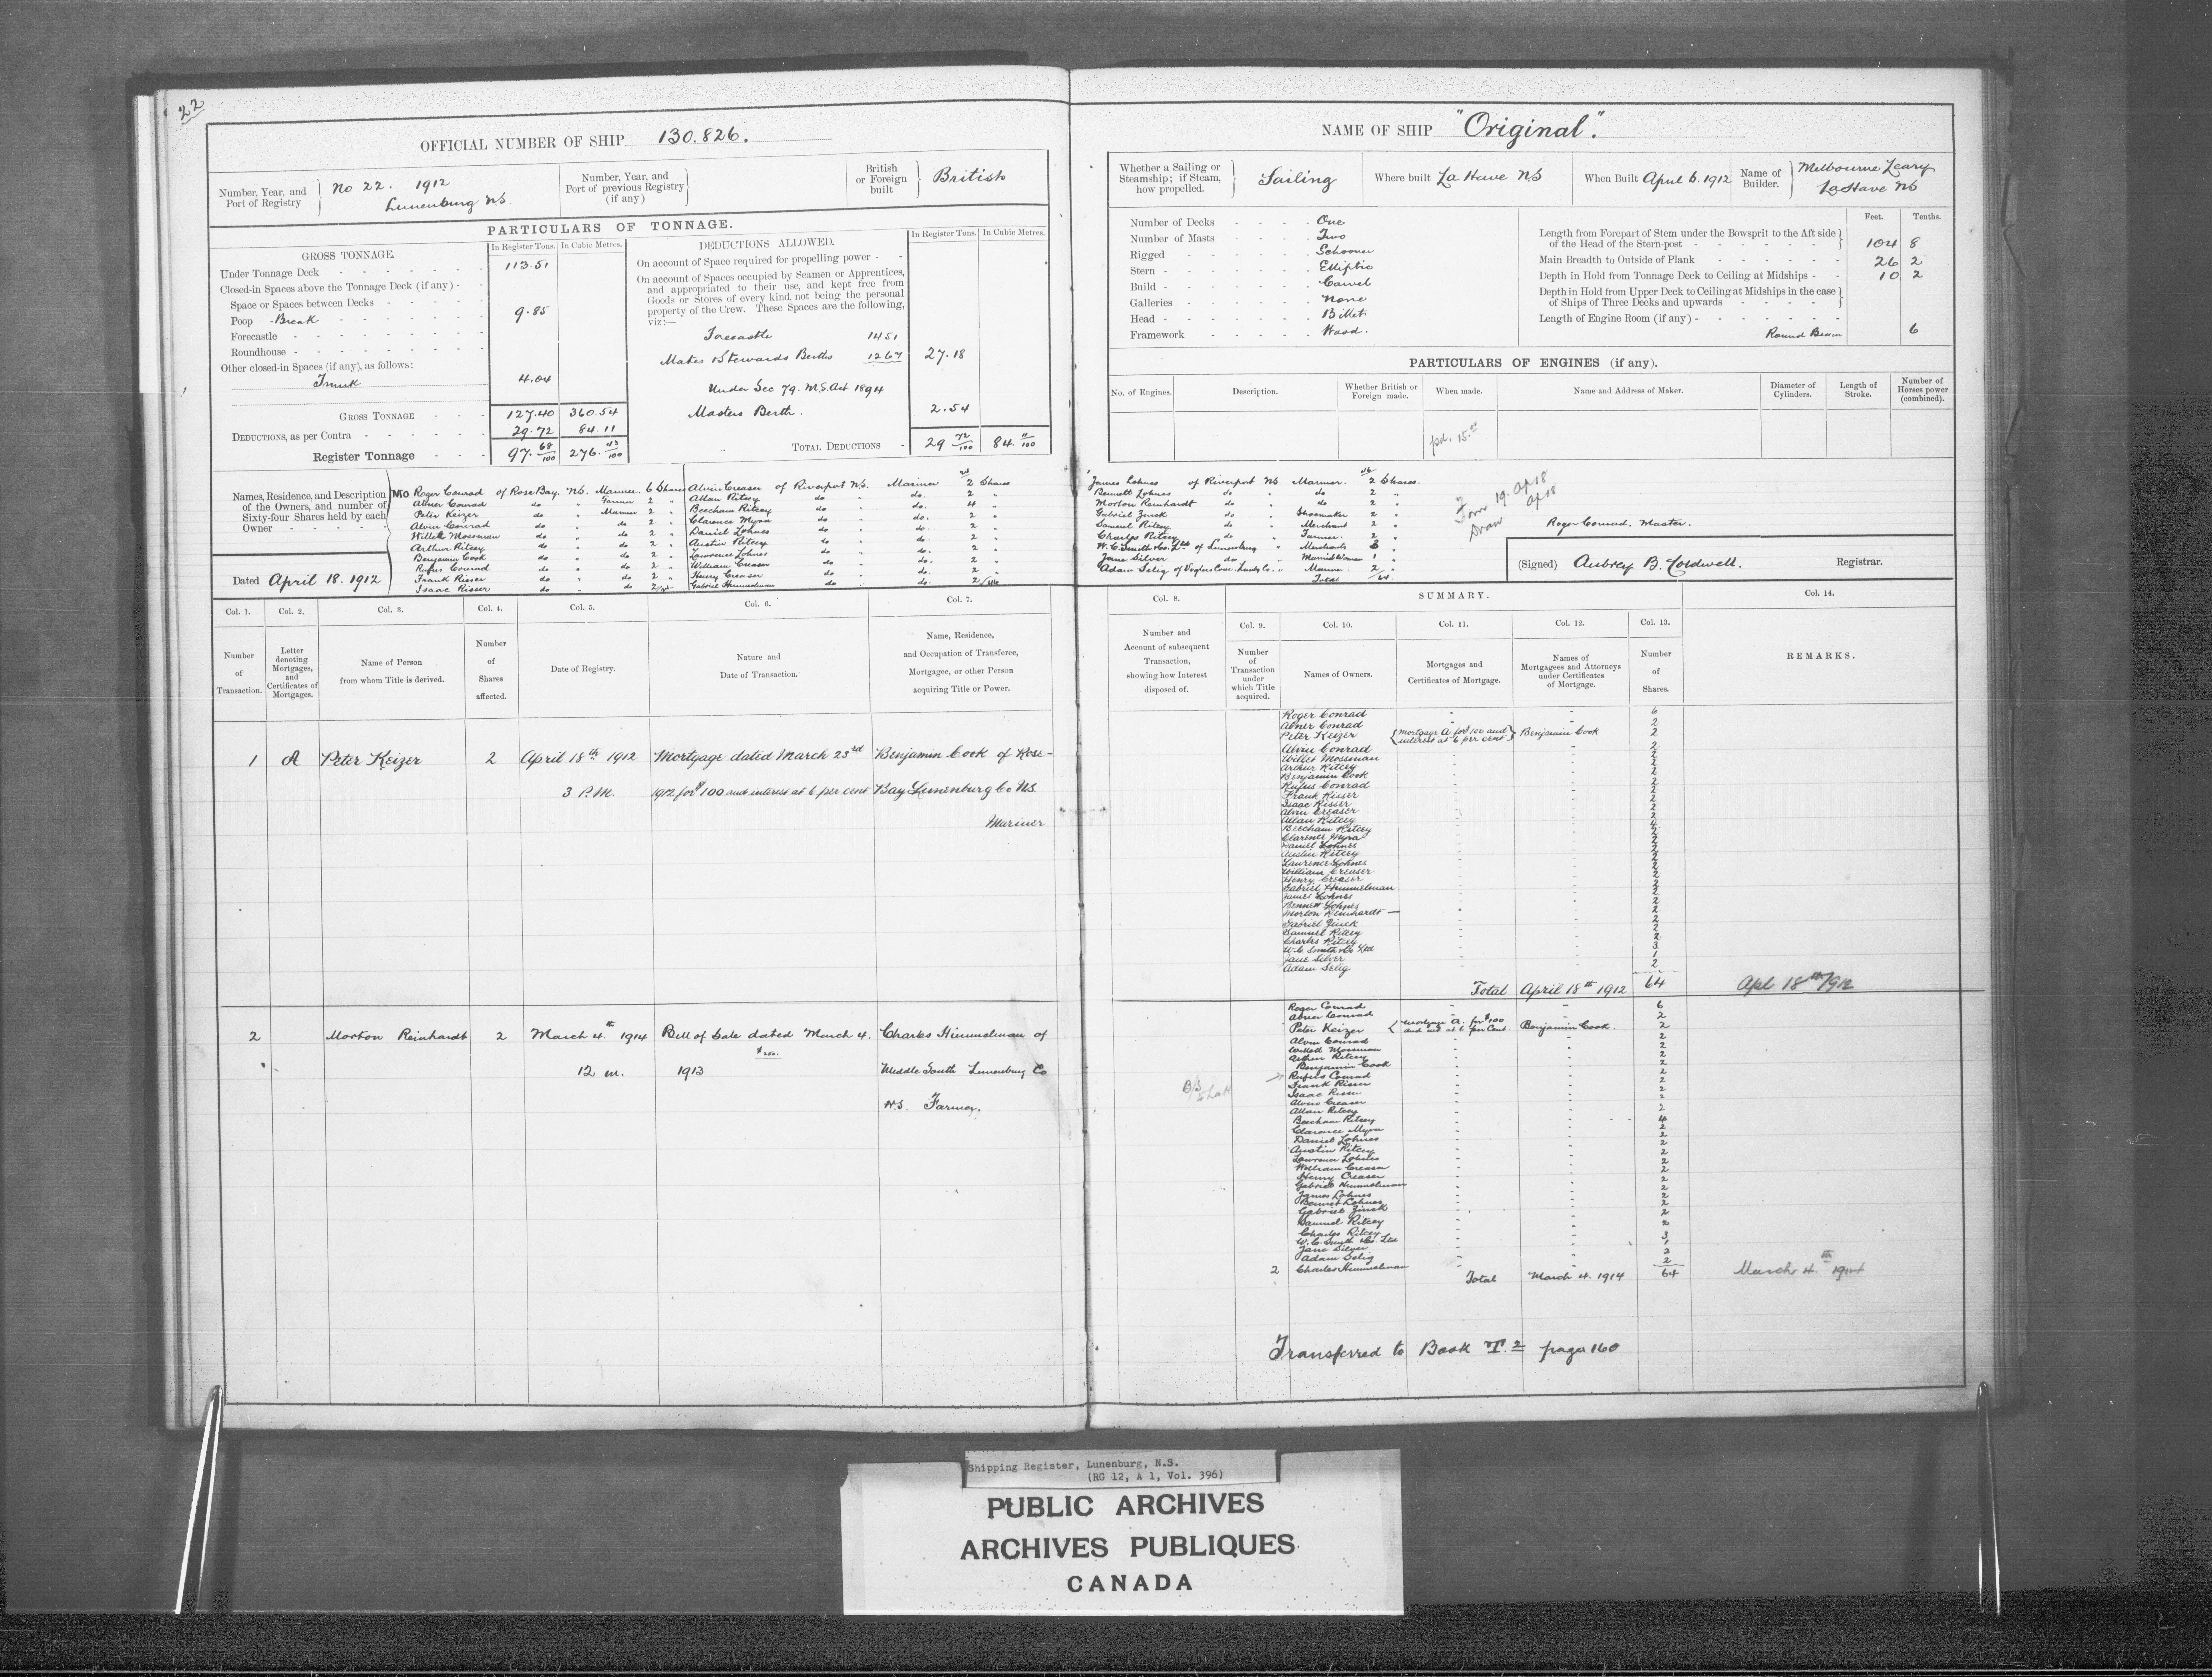 22
OFFICIAL NUMBER OF SHIP 130.826.
Number, Year, and Port of Registry
No 22. 1912
Lunenburg NS.
Number, Year, and Port of previous Registry (if any)
British or Foreign built
British
PARTICULARS OF TONNAGE.
GROSS TONNAGE. In Register Tons. In Cubic Metres.
Under Tonnage Deck 113.51
Closed-in Spaces above the Tonnage Deck (if any) -
Space or Spaces between Decks
Poop - Break 9.85
Forecastle
Roundhouse
Other closed-in Spaces (if any), as follows:
Trunk 4.04
GROSS TONNAGE 127.40 360.54
DEDUCTIONS, as per Contra 29.72 84.11
Register Tonnage 97.68/100 276.43/100
DEDUCTIONS ALLOWED. In Register Tons. In Cubic Metres.
On account of Space required for propelling power -
On account of Spaces occupied by Seamen or Apprentices,
and appropriated to their use, and kept free from
Goods or Stores of every kind, not being the personal
property of the Crew. These Spaces are the following,
viz:—
Forecastle 14 51
Mates & Stewards Berths 12 67 27.18
Under Sec 79. M.S. Act 1894
Masters Berth. 2.54
TOTAL DEDUCTIONS 29 72/100 84. 11/100
Names, Residence, and Description
of the Owners, and number of
Sixty-four Shares held by each
Owner
Roger Conrad of Rose Bay. NS. Mariner. 6 Shares
Abner Conrad do " Farmer 2 "
Peter Keizer do " Mariner 2 "
Alvin Conrad do " do 2 "
Willett Mossman do " do 2 "
Arthur Ritcey do " do 2 "
Benjamin Cook do " do 2 "
Rufus Conrad do " do 2 "
Frank Risser do " do 2 "
Isaac Risser do " do 2
Alvin Creaser of Riverport NS. Mariner 2 Shares
Allan Ritcey do " do. 2 "
Beecham Ritcey do " do. 4 "
Clarence Myra do " do. 2 "
Daniel Lohnes do " do. 2 "
Austin Ritcey do " do. 2 "
Lawrence Lohnes do " do. 2 "
William Creaser do " do. 2 "
Henry Creaser do " do. 2 "
Gabriel Himmelman do " do. 2
Dated April 18. 1912
NAME OF SHIP "Original".
Whether a Sailing or Steamship; if Steam, how propelled.
Sailing
Where built La Have NS
When Built April 6. 1912
Name of Builder.
Melbourne Leary
LaHave NS
Number of Decks One
Number of Masts Two
Rigged Schooner
Stern Elliptic
Build Carvel
Galleries None
Head Billet
Framework Wood.
Feet. Tenths.
Length from Forepart of Stem under the Bowsprit to the Aft side
of the Head of the Stern-post 104 8
Main Breadth to Outside of Plank 26 2
Depth in Hold from Tonnage Deck to Ceiling at Midships 10 2
Depth in Hold from Upper Deck to Ceiling at Midships in the case
of Ships of Three Decks and upwards
Length of Engine Room (if any)
Round Beam 6
PARTICULARS OF ENGINES (if any).
No. of Engines. Description. Whether British or Foreign made. When made. Name and Address of Maker. Diameter of Cylinders. Length of Stroke. Number of Horses power (combined).
James Lohnes of Riverport NS. Mariner. 2 Shares.
Bennett Lohnes do " do 2 "
Morton Reinhardt do " do 2 "
Gabriel Zinck do " Shoemaker 2 "
Samuel Ritcey do " Merchant 2 "
Charles Ritcey do " Farmer. 2 "
W. C. Smith & Co. Ltd of Lunenburg " Merchants 3 "
Jane Silver do " Married Woman 1 "
Adam Selig of Voglers Cove. Lunbg Co. " Mariner 2 "
Total 64.
Roger Conrad. Master.
(Signed) Aubrey B. Coldwell. Registrar.
Col. 1. Col. 2. Col. 3. Col. 4. Col. 5. Col. 6. Col. 7.
Number of Transaction.
Letter denoting Mortgages, and Certificates of Mortgages.
Name of Person from whom Title is derived.
Number of Shares affected.
Date of Registry.
Nature and Date of Transaction.
Name, Residence, and Occupation of Transferee, Mortgagee, or other Person acquiring Title or Power.
1 A Peter Keizer 2 April 18th 1912 Mortgage dated March 23rd Benjamin Cook of Rose-
3 P.M. 1912 for $100 and interest at 6 per cent Bay Lunenburg Co NS.
Mariner
2 Morton Reinhardt 2 March 4th 1914 Bill of Sale dated March 4. Charles Himmelman of
12 m. 1913 Middle South Lunenburg Co
N.S. Farmer.
Col. 8. SUMMARY. Col. 14.
Col. 9. Col. 10. Col. 11. Col. 12. Col. 13.
Number and Account of subsequent Transaction, showing how Interest disposed of.
Number of Transaction under which Title acquired.
Names of Owners.
Mortgages and Certificates of Mortgage.
Names of Mortgagees and Attorneys under Certificates of Mortgage.
Number of Shares.
REMARKS.
Roger Conrad 6
Abner Conrad 2
Peter Keizer Mortgage A. for $100 and interest at 6 per cent Benjamin Cook 2
Alvin Conrad 2
Willet Mossman 2
Arthur Ritcey 2
Benjamin Cook 2
Rufus Conrad 2
Frank Risser 2
Isaac Risser 2
Alvin Creaser 2
Allan Ritcey 2
Beecham Ritcey 4
Clarence Myra 2
Daniel Lohnes 2
Austin Ritcey 2
Lawrence Lohnes 2
William Creaser 2
Henry Creaser 2
Gabriel Himmelman 2
James Lohnes 2
Bennett Lohnes 2
Morton Reinhardt 2
Gabriel Zinck 2
Samuel Ritcey 2
Charles Ritcey 2
W.C. Smith & Co Ltd 3
Jane Silver 1
Adam Selig 2
Total April 18th 1912 64 Apl 18th/1912
Roger Conrad 6
Abner Conrad 2
Peter Keizer Mortgage A. for $100 and int at 6 per Cent Benjamin Cook. 2
Alvin Conrad 2
Willett Mossman 2
Arthur Ritcey 2
Benjamin Cook 2
Rufus Conrad 2
Frank Risser 2
Isaac Risser 2
Alvin Creaser 2
Allan Ritcey 2
Beecham Ritcey 4
Clarence Myra 2
Daniel Lohnes 2
Austin Ritcey 2
Lawrence Lohnes 2
William Creaser 2
Henry Creaser 2
Gabriel Himmelman 2
James Lohnes 2
Bennett Lohnes 2
Gabriel Zinck 2
Samuel Ritcey 2
Charles Ritcey 2
W.C. Smith & Co. Ltd 3
Jane Silver 1
Adam Selig 2
2 Charles Himmelman 2
Total March 4. 1914 64 March 4th 1914
Transferred to Book T.2 page 160
Shipping Register, Lunenburg, N.S.
(RG 12, A 1, Vol. 396)
PUBLIC ARCHIVES
ARCHIVES PUBLIQUES
CANADA